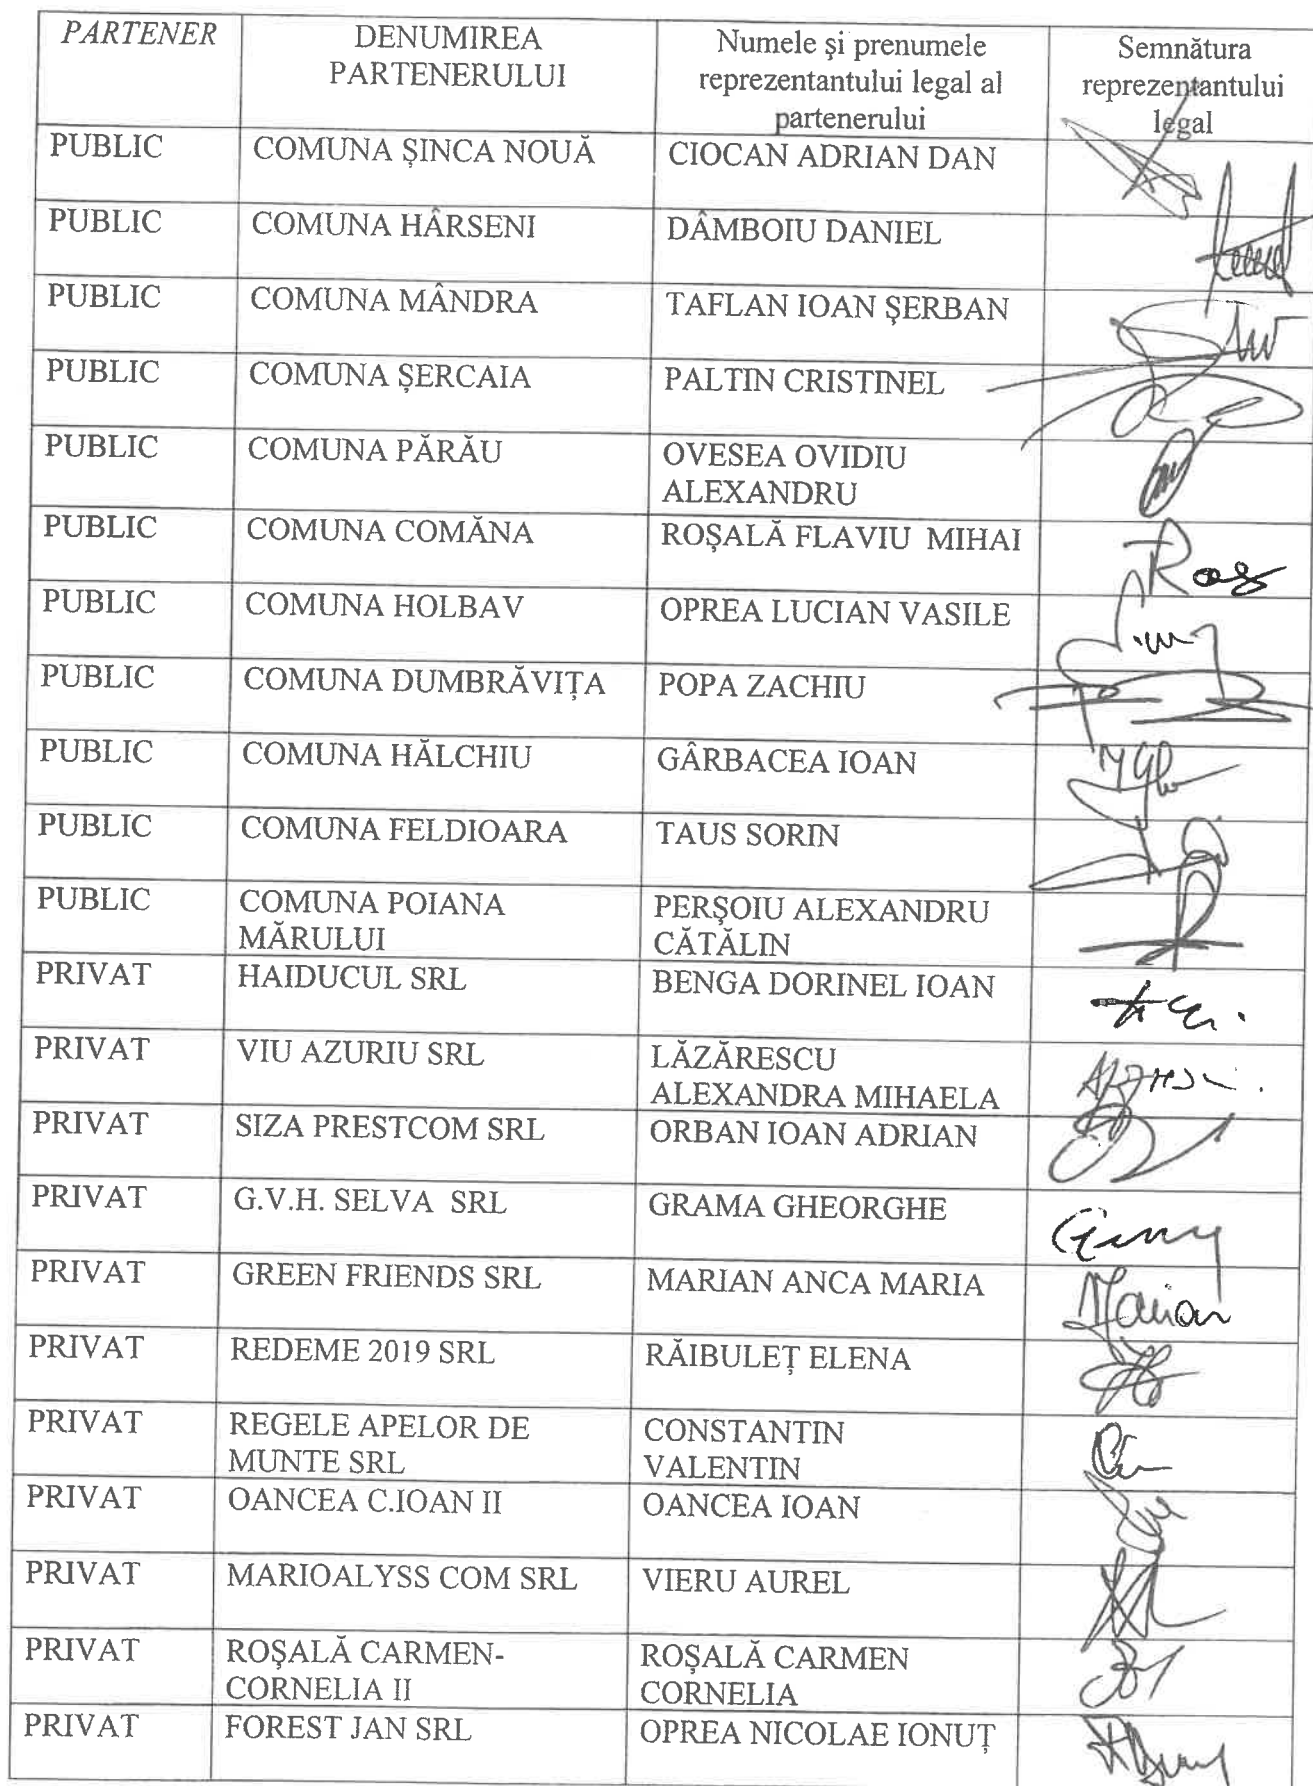 PARTENER
DENUMIREA
PARTENERULUI
Numele şi prenumele
reprezentantului legal al
partenerului
Semnătura
reprezentantului
legal
PUBLIC COMUNA ȘINCA NOUĂ CIOCAN ADRIAN DAN
PUBLIC COMUNA HÂRSENI DÂMBOIU DANIEL
PUBLIC COMUNA MÂNDRA TAFLAN IOAN ŞERBAN
PUBLIC COMUNA ȘERCAIA PALTIN CRISTINEL
PUBLIC COMUNA PĂRĂU OVESEA OVIDIU
ALEXANDRU
PUBLIC COMUNA COMĂNA ROŞALĂ FLAVIU MIHAI
PUBLIC COMUNA HOLBAV OPREA LUCIAN VASILE
PUBLIC COMUNA DUMBRĂVIȚA POPA ZACHIU
PUBLIC COMUNA HĂLCHIU GÂRBACEA IOAN
PUBLIC COMUNA FELDIOARA TAUS SORIN
PUBLIC COMUNA POIANA PERŞOIU ALEXANDRU
MĂRULUI CĂTĂLIN
PRIVAT HAIDUCUL SRL BENGA DORINEL IOAN
PRIVAT VIU AZURIU SRL LĂZĂRESCU
ALEXANDRA MIHAELA
PRIVAT SIZA PRESTCOM SRL ORBAN IOAN ADRIAN
PRIVAT G.V.H. SELVA SRL GRAMA GHEORGHE
PRIVAT GREEN FRIENDS SRL MARIAN ANCA MARIA
Marian
PRIVAT REDEME 2019 SRL RĂIBULEȚ ELENA
PRIVAT REGELE APELOR DE CONSTANTIN
MUNTE SRL VALENTIN
PRIVAT OANCEA C.IOAN II OANCEA IOAN
PRIVAT MARIOALYSS COM SRL VIERU AUREL
PRIVAT ROŞALĂ CARMEN- ROŞALĂ CARMEN
CORNELIA II CORNELIA
PRIVAT FOREST JAN SRL OPREA NICOLAE IONUȚ